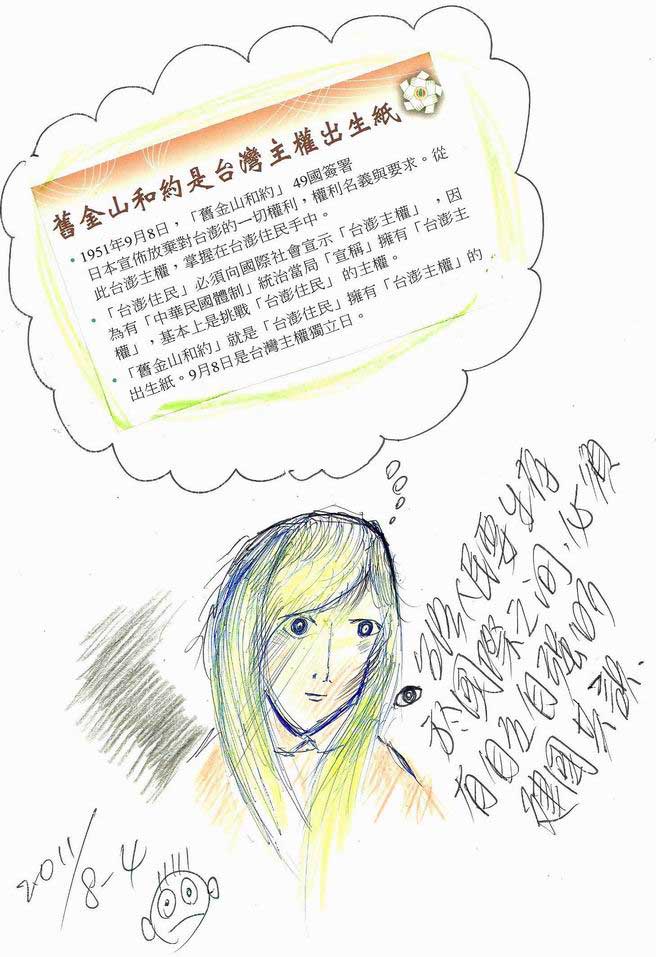 舊金山和約是台灣主權出生紙
• 1951年9月8日，「舊金山和約」 49國簽署
日本宣佈放棄對台澎的一切權利，權利名義與要求。從
此台澎主權，掌握在台澎住民手中。
• 「台澎住民」必須向國際社會宣示「台澎主權」，因
為有「中華民國體制」統治當局「宣稱」擁有「台澎主
權」，基本上是挑戰「台澎住民」的主權。
• 「舊金山和約」就是「台澎住民」擁有「台澎主權」的
出生紙。9月8日是台灣主權獨立日。
台灣人民要生存
於國際之間，必須
有自立自強的
建國共識．
2011/8-4